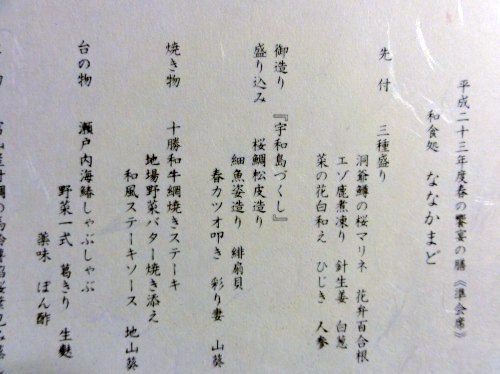 平成二十三年度春の饗宴の膳《準会席》
和食処 ななかまど
先付 三種盛り
洞爺鱒の桜マリネ 花弁百合根
エゾ鹿煮凍り 針生姜 白葱
菜の花白和え ひじき 人参
御造り 『宇和島づくし』
盛り込み 桜鯛松皮造り
細魚姿造り 緋扇貝
春カツオ叩き 彩り妻 山葵
焼き物 十勝和牛網焼きステーキ
地場野菜バター焼き添え
和風ステーキソース 地山葵
台の物 瀬戸内海鱧しゃぶしゃぶ
野菜一式 葛きり 生麩
薬味 ぽん酢